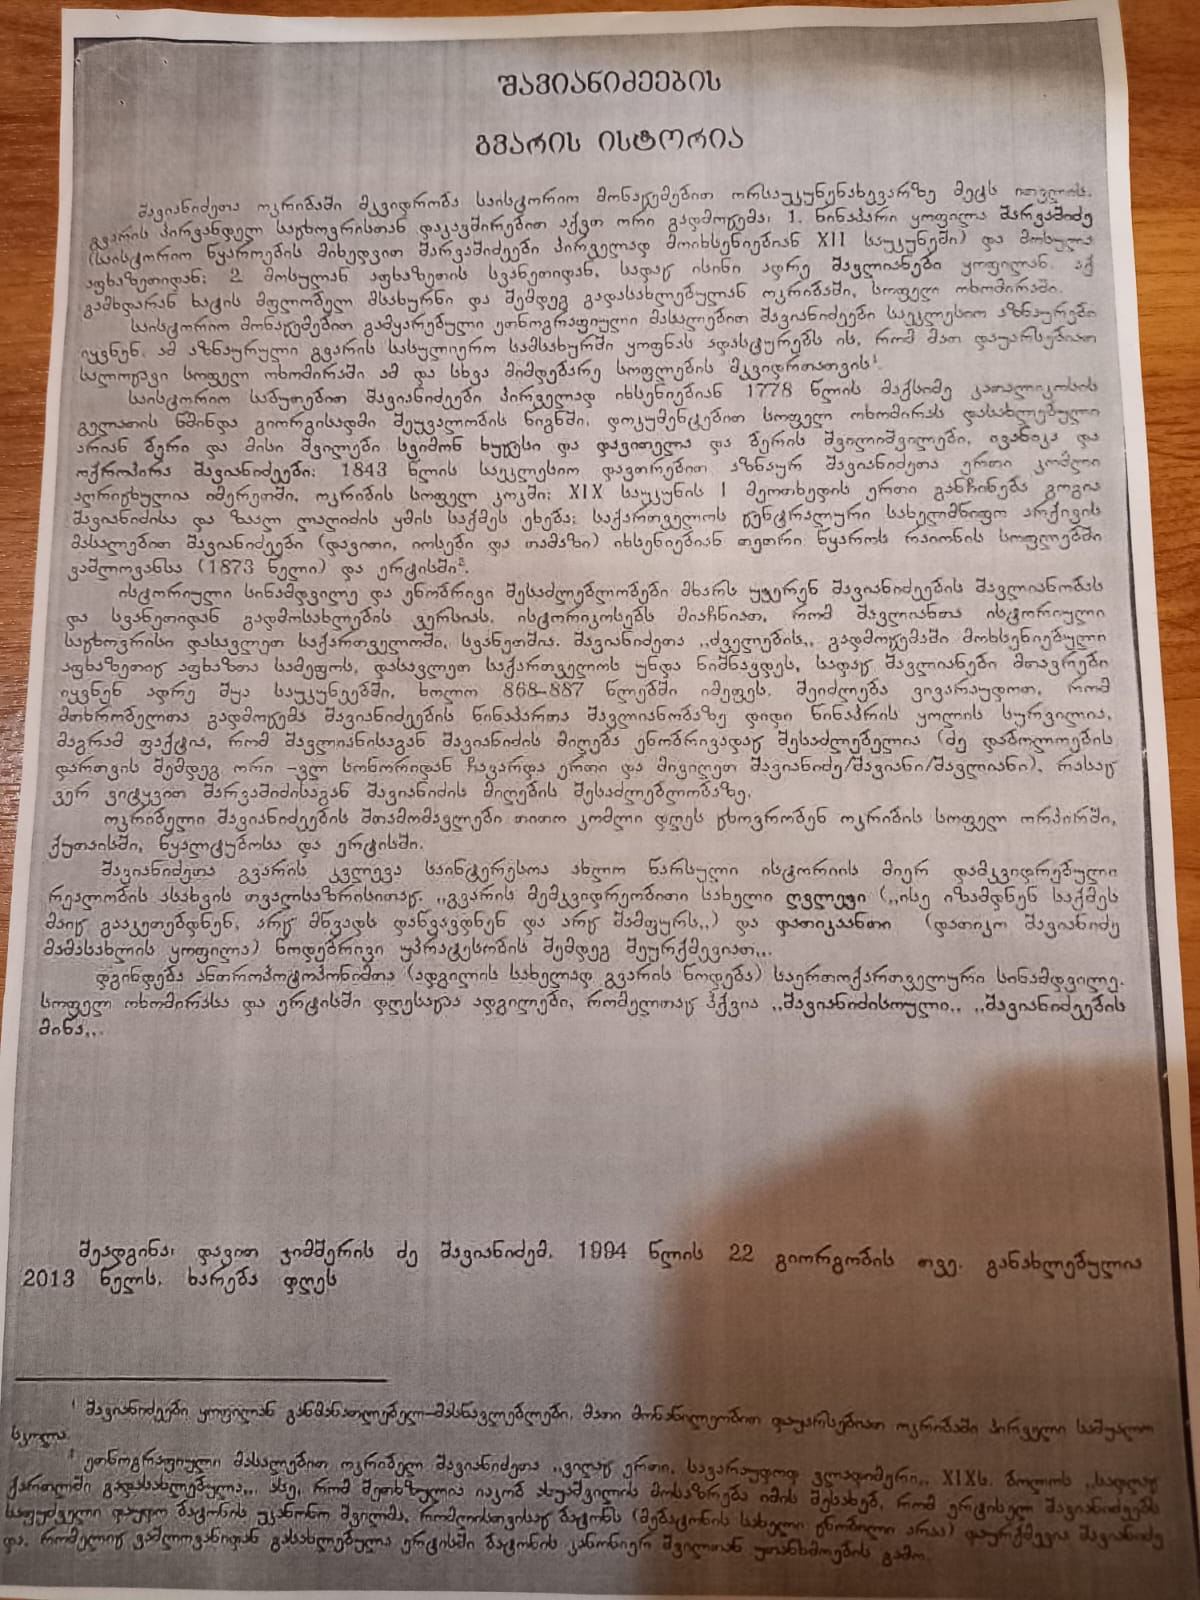 შავიანიძეების
გვარის ისტორია
შავიანიძეთა ოკრიბაში მკვიდრობა საისტორიო მონაცემებით ორსაუკუნენახევარზე მეტს ითვლის.
გვარის პირვანდელ საცხოვრისთან დაკავშირებით აქვთ ორი გადმოცემა: 1. წინაპარი ყოფილა შარვაშიძე
(საისტორიო წყაროების მიხედვით შარვაშიძეები პირველად მოიხსენიებიან XII საუკუნეში) და მოსულა
აფხაზეთიდან; 2 მოსულან აფხაზეთის სვანეთიდან, სადაც ისინი ადრე შავლიანები ყოფილან. აქ
გამხდარან ხატის მფლობელ მსახურნი და შემდეგ გადასახლებულან ოკრიბაში, სოფელი ოხომირაში.
საისტორიო მონაცემებით გამყარებული ეთნოგრაფიული მასალებით შავიანიძეები საეკლესიო აზნაურები
იყვნენ. ამ აზნაურული გვარის სასულიერო სამსახურში ყოფნას ადასტურებს ის, რომ მათ დაუარსებიათ
სალოცავი სოფელ ოხომირაში ამ და სხვა მიმდებარე სოფლების მკვიდრთათვის¹.
საისტორიო საბუთებით შავიანიძეები პირველად იხსენიებიან 1778 წლის მაქსიმე კათალიკოსის
გელათის წმინდა გიორგისადმი შეუვალობის წიგნში. დოკუმენტებით სოფელ ოხომირას დასახლებული
არიან ბერი და მისი შვილები სვიმონ ხუცესი და დავითელა და ბერის შვილიშვილები, ივანიკა და
ოქროპირა შავიანიძეები; 1843 წლის საეკლესიო დავთრებით აზნაურ შავიანიძეთა ერთი კომლი
აღრიცხულია იმერეთში, ოკრიბის სოფელ კოკში; XIX საუკუნის I მეოთხედის ერთი განჩინება გოგია
შავიანიძისა და ზაალ ლაღიძის ყმის საქმეს ეხება; საქართველოს ცენტრალური სახელმწიფო არქივის
მასალებით შავიანიძეები (დავითი, იოსები და თამაზი) იხსენიებიან თეთრი წყაროს რაიონის სოფლებში
ვაშლოვანსა (1873 წელი) და ერტისში².
ისტორიული სინამდვილე და ენობრივი შესაძლებლობები მხარს უჭერენ შავიანიძეების შავლიანობას
და სვანეთიდან გადმოსახლების ვერსიას. ისტორიკოსებს მიაჩნიათ, რომ შავლიანთა ისტორიული
საცხოვრისი დასავლეთ საქართველოში, სვანეთშია. შავიანიძეთა ,,ძველების,, გადმოცემაში მოხსენიებული
აფხაზეთიც აფხაზთა სამეფოს, დასავლეთ საქართველოს უნდა ნიშნავდეს, სადაც შავლიანები მთავრები
იყვნენ ადრე შუა საუკუნეებში, ხოლო 868-887 წლებში იმეფეს. შეიძლება ვივარაუდოთ, რომ
მთხრობელთა გადმოცემა შავიანიძეების წინაპართა შავლიანობაზე დიდი წინაპრის ყოლის სურვილია,
მაგრამ ფაქტია, რომ შავლიანისაგან შავიანიძის მიღება ენობრივადაც შესაძლებელია (ძე დაბოლოების
დართვის შემდეგ ორი –ვლ სონორიდან ჩავარდა ერთი და მივიღეთ შავიანიძე/შავიანი/შავლიანი), რასაც
ვერ ვიტყვით შარვაშიძისაგან შავიანიძის მიღების შესაძლებლობაზე.
ოკრიბელი შავიანიძეების შთამომავლები თითო კომლი დღეს ცხოვრობენ ოკრიბის სოფელ ორპირში,
ქუთაისში, წყალტუბოსა და ერტისში.
შავიანიძეთა გვარის კვლევა საინტერესოა ახლო წარსული ისტორიის მიერ დამკვიდრებული
რეალობის ასახვის თვალსაზრისითაც. ,,გვარის მემკვიდრეობითი სახელი ღვლეფი (,,ისე იზამდნენ საქმეს
მაიც გააკეთებდნენ, არც მწვადს დაწვავდნენ და არც შამფურს,,) და დათიკაანთი (დათიკო შავიანიძე
მამასახლის ყოფილა) წოდებრივი უპრატესობის შემდეგ შეურქმევიათ,,.
დგინდება ანთროპოტოპონიმთა (ადგილის სახელად გვარის წოდება) საერთოქართველური სინამდვილე.
სოფელ ოხომირასა და ერტისში დღესაცაა ადგილები, რომელთაც ჰქვია ,,შავიანიძისოული,, ,,შავიანიძეების
მიწა,,.
შეადგინა: დავით ჯიმშერის ძე შავიანიძემ. 1994 წლის 22 გიორგობის თვე. განახლებულია
2013 წელს. ხარება დღეს
¹ შავიანიძეები ყოფილან განმანათლებელ-მასწავლებლები, მათი მონაწილეობით დაუარსებიათ ოკრიბაში პირველი საშუალო
სკოლა.
² ეთნოგრაფიული მასალებით ოკრიბელ შავიანიძეთა ,,ვიღაც ერთი, სავარაუდოდ ვლადიმერი,, XIXს. ბოლოს ,,სადღაც
ქართლში გადასახლებულა,,. ასე, რომ შეთხზულია იაკობ ახუაშვილის მოსაზრება იმის შესახებ, რომ ერტისელ შავიანიძეებს
საფუძველი დაუდო ბატონის უკანონო შვილმა, რომლისთვისაც ბატონს (მებატონის სახელი ცნობილი არაა) დაურქმევია შავიანიძე
და, რომელიც ვაშლოვანიდან გასახლებულა ერტისში ბატონის კანონიერ შვილთან უთანხმოების გამო.